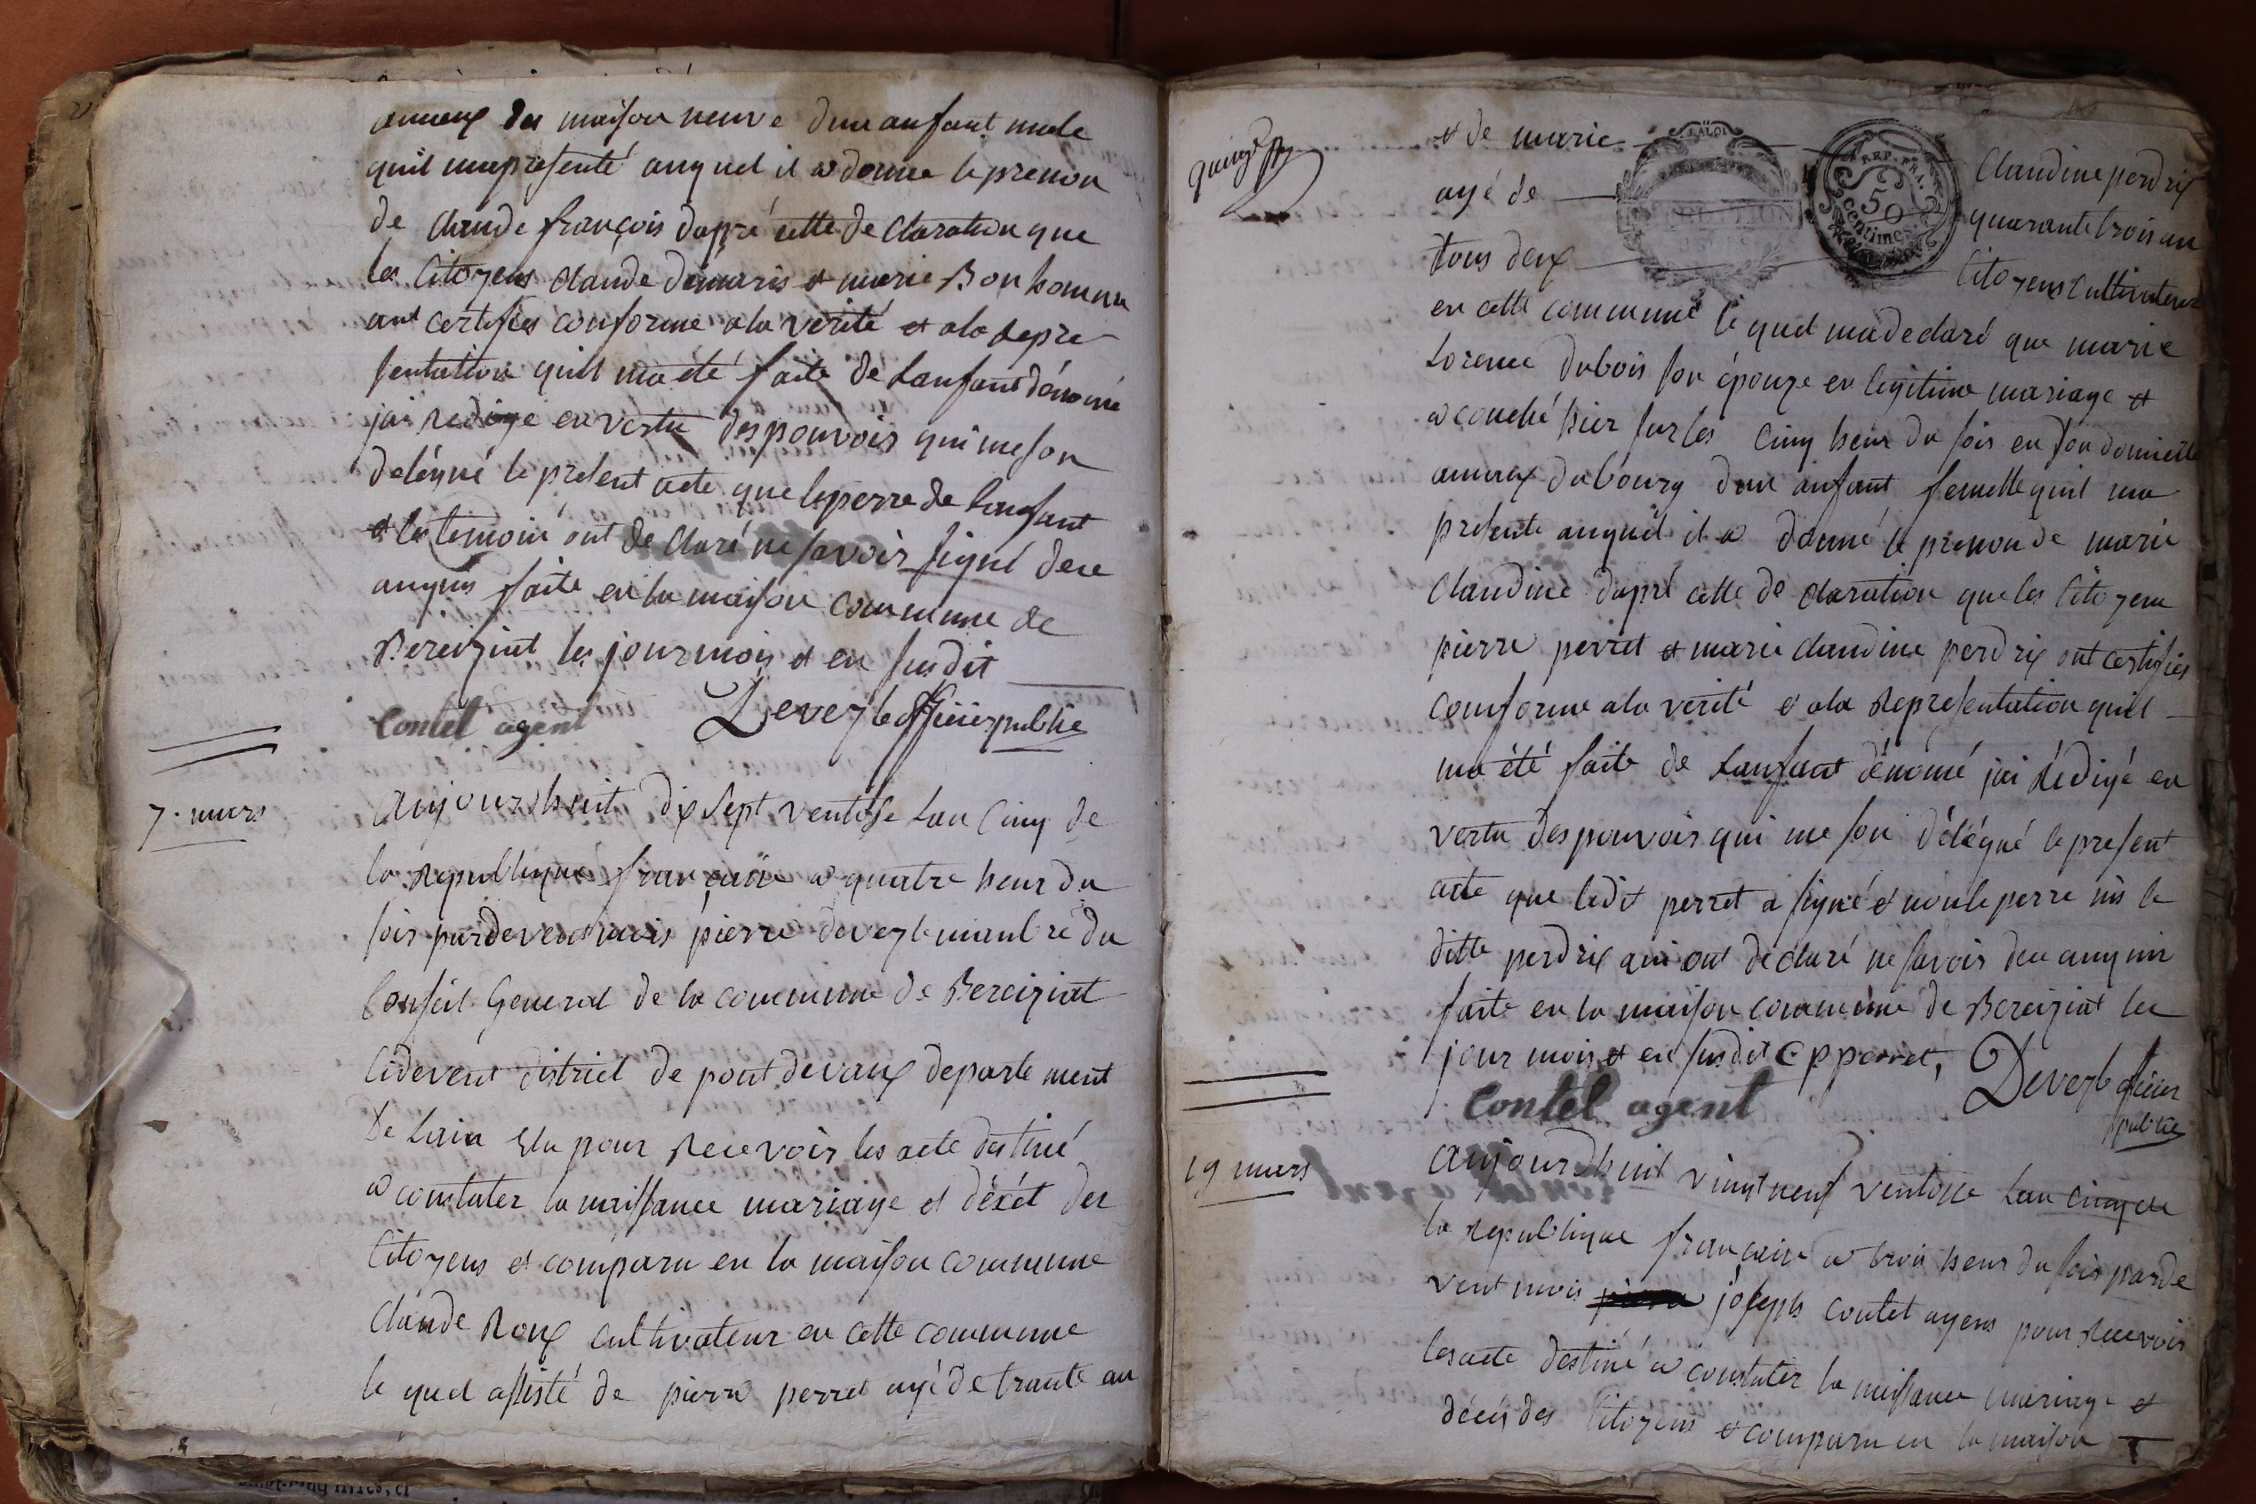 ameaux du maison neuve dun anfant male
quil ma presenté auquel il a donne le prenon
de claude françois dapré cette de claration que
les Citoyens claude demaris et marie Bonhomme
ont certifiés conforme ala verité et ala repre
sentation quil ma été faite de Lanfant dénomé
jai redigé en vertu des pouvoirs qui me son
delégué le present acte que le perre de Lanfant
et les temoin ont de claré ne savoir signé de ce
anquis faite en la maison commune de
Bereiziat les jour mois et en susdit
Contet agent Deveyle officier public
7. mars
aujourdhuit dix sept ventose Lan Cinq de
la republique françaisse a quatre heur du
soir pardevent mois pierre deveyle manbre du
Conseil General de la commune de Bereiziat
Cidevent district de pont devaux departement
De Lain Elu pour recevoir les acte destiné
a constater la naissance mariage et décét des
Citoyens et comparu en la maison commune
Claude Roux cultivateur en cette commune
le quel assisté de pierre perret agé de trante an
quinze
et de marie Claudine perdrix
agé de quarante trois an
tous deux Citoyens cultivateur
LA LOI
REP. FRA.
50
Centimes
en cette commune le quel ma declaré que marie
Lorence dubois son épouze en legitime mariage et
acouché hier sur les Cinq heur du soir en son domicille
ameaux du bourg dun anfant femelle quil ma
presente auquel il a donné le prenon de marie
Claudine dapré cette de claration que les Citoyens
pierre perret et marie claudine perdrix ont certifiés
conforme ala verité et ala representation quil
ma été faite de Lanfant dénomé jai rédigé en
vertu des pouvoirs qui me son délégué le present
acte que ledit perret a signé et non le perre nis la
ditte perdrix qui ont déclaré ne savoir de ce anquis
faite en la maison commune de Bereiziat les
jour mois et en susdit C p perret, Deveyle officier
public
Contet agent
19 mars
aujourdhuit vingt neuf ventosse Lan cinq de
la republique françaisse a trois heur du soir parde
vent mois joseph contet agens pour recevoir
les acte destiné a constater la naissance mariage et
décéz des Citoyens et comparu en la maison